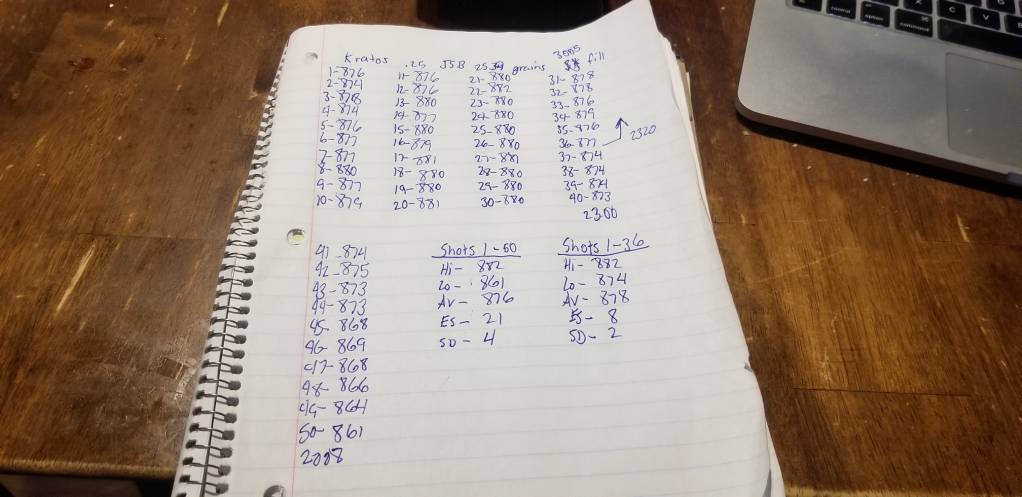 Kratos .25 JSB 25.39 grains fill
1-876 11-876 21-880 31-878
2-874 12-876 22-882 32-878
3-878 13-880 23-880 33-876
4-874 14-877 24-880 34-879
5-876 15-880 25-880 35-876
6-877 16-879 26-880 36-877 2320
7-877 17-881 27-881 37-874
8-880 18-880 28-880 38-874
9-877 19-880 29-880 39-874
10-879 20-881 30-880 40-873
2300
41-874 Shots 1-50 Shots 1-36
42-875 Hi- 882 Hi- 882
43-873 Lo- 861 Lo- 874
44-873 Av- 876 Av- 878
45-868 ES- 21 ES- 8
46-869 SD- 4 SD- 2
47-868
48-866
49-864
50-861
control option command C V